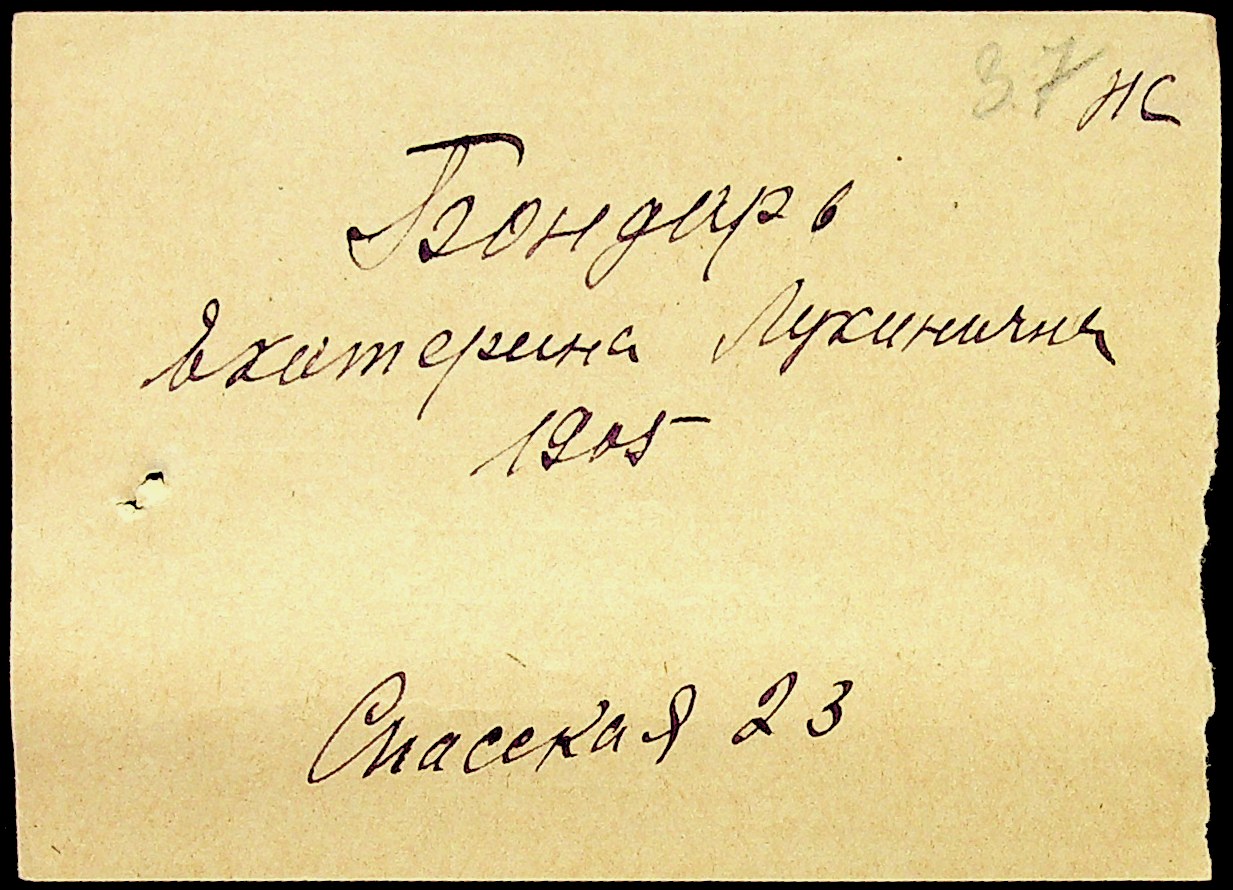 37 НС
Бондарь
Екатерина Лукинична
1905
Спасская 23